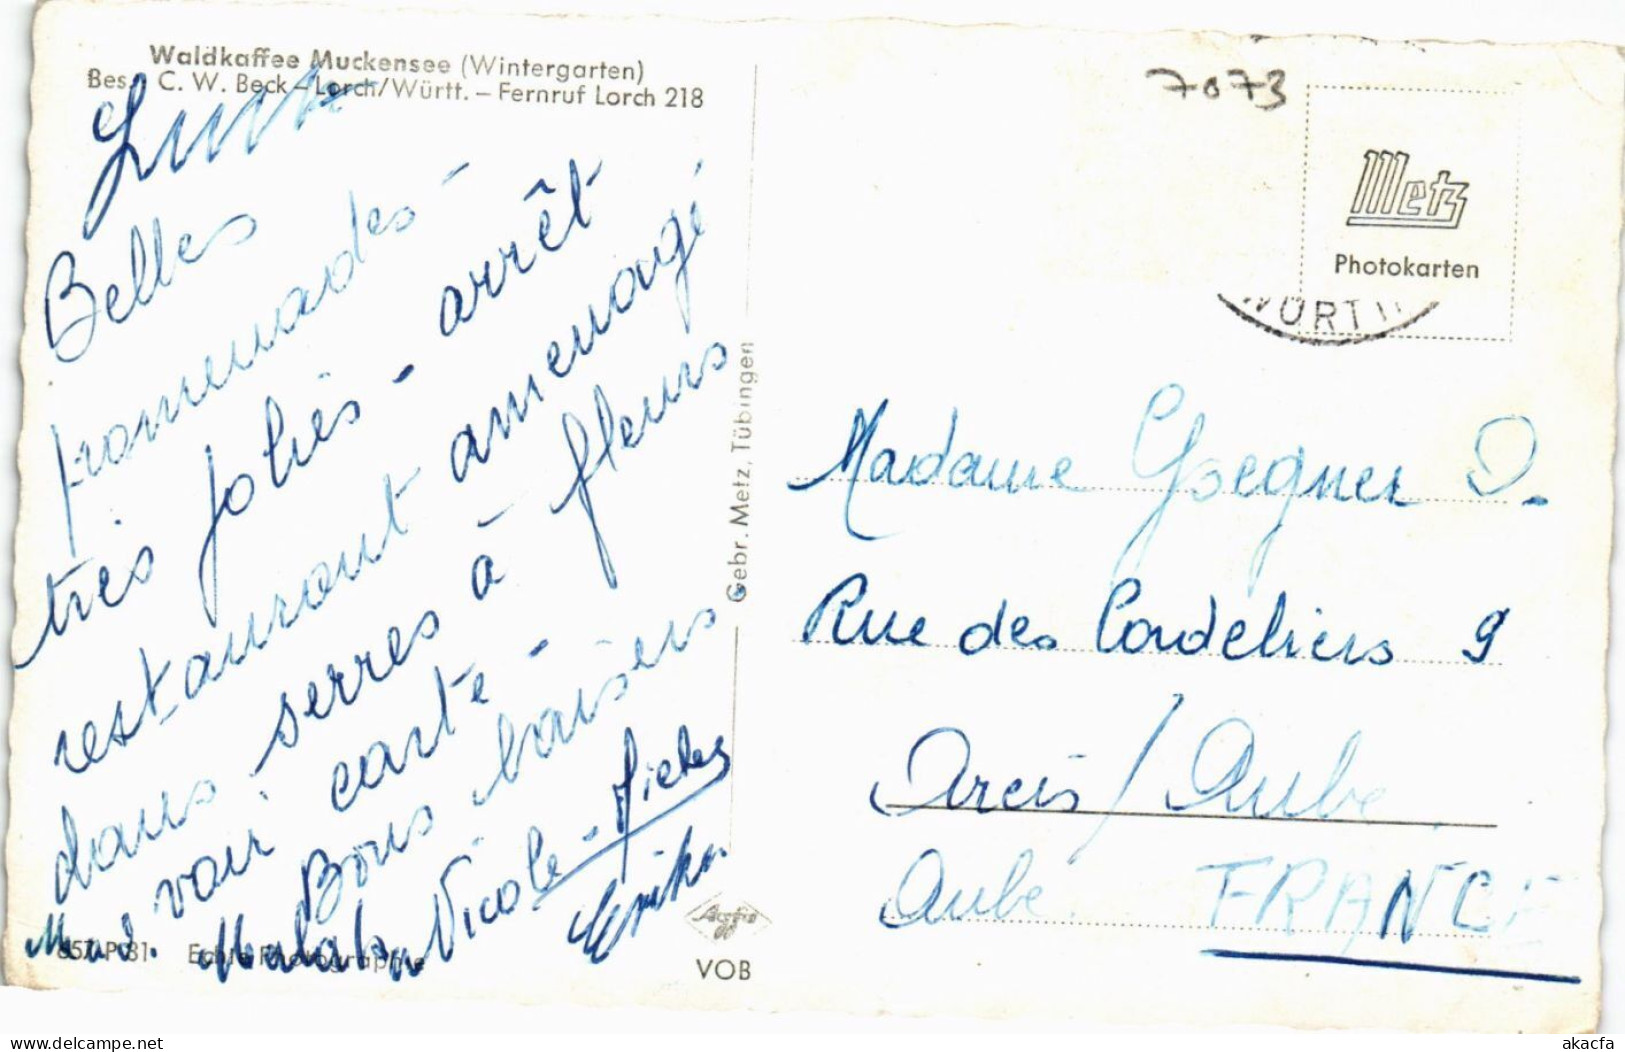 Waldkaffee Muckensee (Wintergarten)
Bes. C. W. Beck – Lorch/Württ. – Fernruf Lorch 218
7073
Metz
Photokarten
WÜRTT
Belles
promenades -
très jolies - arrêt
restaurant amenagé
dans serres à fleurs
voir carte -
Bons baisers
Nicole -
Erika
Gebr. Metz, Tübingen
Madame Gsegner O.
Rue des Cordeliers 9
Arcis / Aube
Aube FRANCE
Echte Photographie
Agfa
VOB
delcampe.net
akacfa